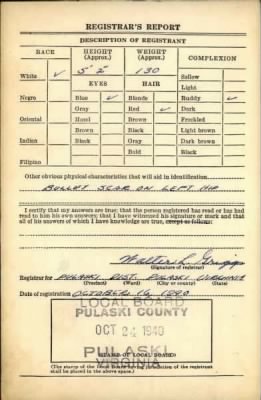 REGISTRAR'S REPORT
DESCRIPTION OF REGISTRANT
RACE HEIGHT (Approx.) WEIGHT (Approx.) COMPLEXION
White ✓ 5' 2" 130 Sallow
EYES HAIR Light
Negro Blue ✓ Blonde Ruddy ✓
Gray Red ✓ Dark
Oriental Hazel Brown Freckled
Brown Black Light brown
Indian Black Gray Dark brown
Bald Black
Filipino
Other obvious physical characteristics that will aid in identification
BULLET SCAR ON LEFT HIP
I certify that my answers are true; that the person registered has read or has had
read to him his own answers; that I have witnessed his signature or mark and that
all of his answers of which I have knowledge are true, except as follows:
Walter L.
(Signature of registrar)
Registrar for PULASKI DIST. PULASKI VIRGINIA
(Precinct) (Ward) (City or county) (State)
Date of registration OCTOBER 16, 1940
LOCAL BOARD
PULASKI COUNTY
OCT 24 1940
PULASKI
(STAMP OF LOCAL BOARD)
VIRGINIA
(The stamp of the Local Board having jurisdiction of the registrant
shall be placed in the above space.)